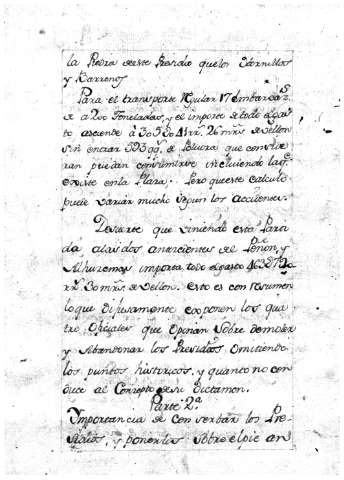 la Piedra de este Presidio que los Dornillos
y Barrenos
Para el transporte regular 17 embarcaz.s
de a 200 Toneladas, y el importe de todo el gas
to asciende à rr.s 26 mrs. de vellon
sin entrar 393 qq. de Polvora que con
ran puedan consumirse incluiendo la q.e
existe en la Plaza. Pero que este calculo
puede variar mucho segun los accidentes.
De suerte que uniendo esta Parti
da a las dos antecedentes de el Peñon, y
Alhucemas importa todo el gasto
rr.s 30 mrs. de vellon. Esto es con resumen
lo que difusamente exponen los qua
tro Oficiales que opinan sobre demoler
y abandonar los Presidios, omitiendo
los puntos historicos, y quanto no con
duce al Concepto de su Dictamen.
Parte 2.a
Importancia de conserbar los Pre
sidios, y ponerlos sobre el pie an